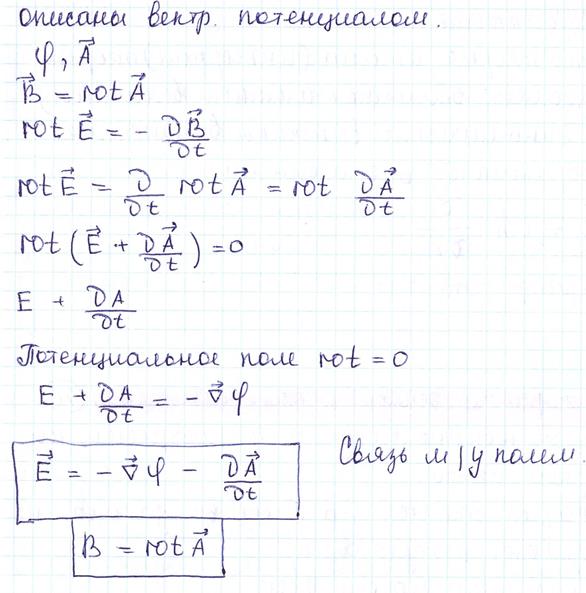 описаны вектр. потенциалом.
φ, A⃗
B⃗ = rot A⃗
rot E⃗ = - ∂B⃗/∂t
rot E⃗ = ∂/∂t rot A⃗ = rot ∂A⃗/∂t
rot(E⃗ + ∂A⃗/∂t) = 0
E + ∂A/∂t
Потенциальное поле rot = 0
E + ∂A/∂t = - ∇⃗ φ
E⃗ = - ∇⃗ φ - ∂A⃗/∂t Связь м/у полем.
B = rot A⃗